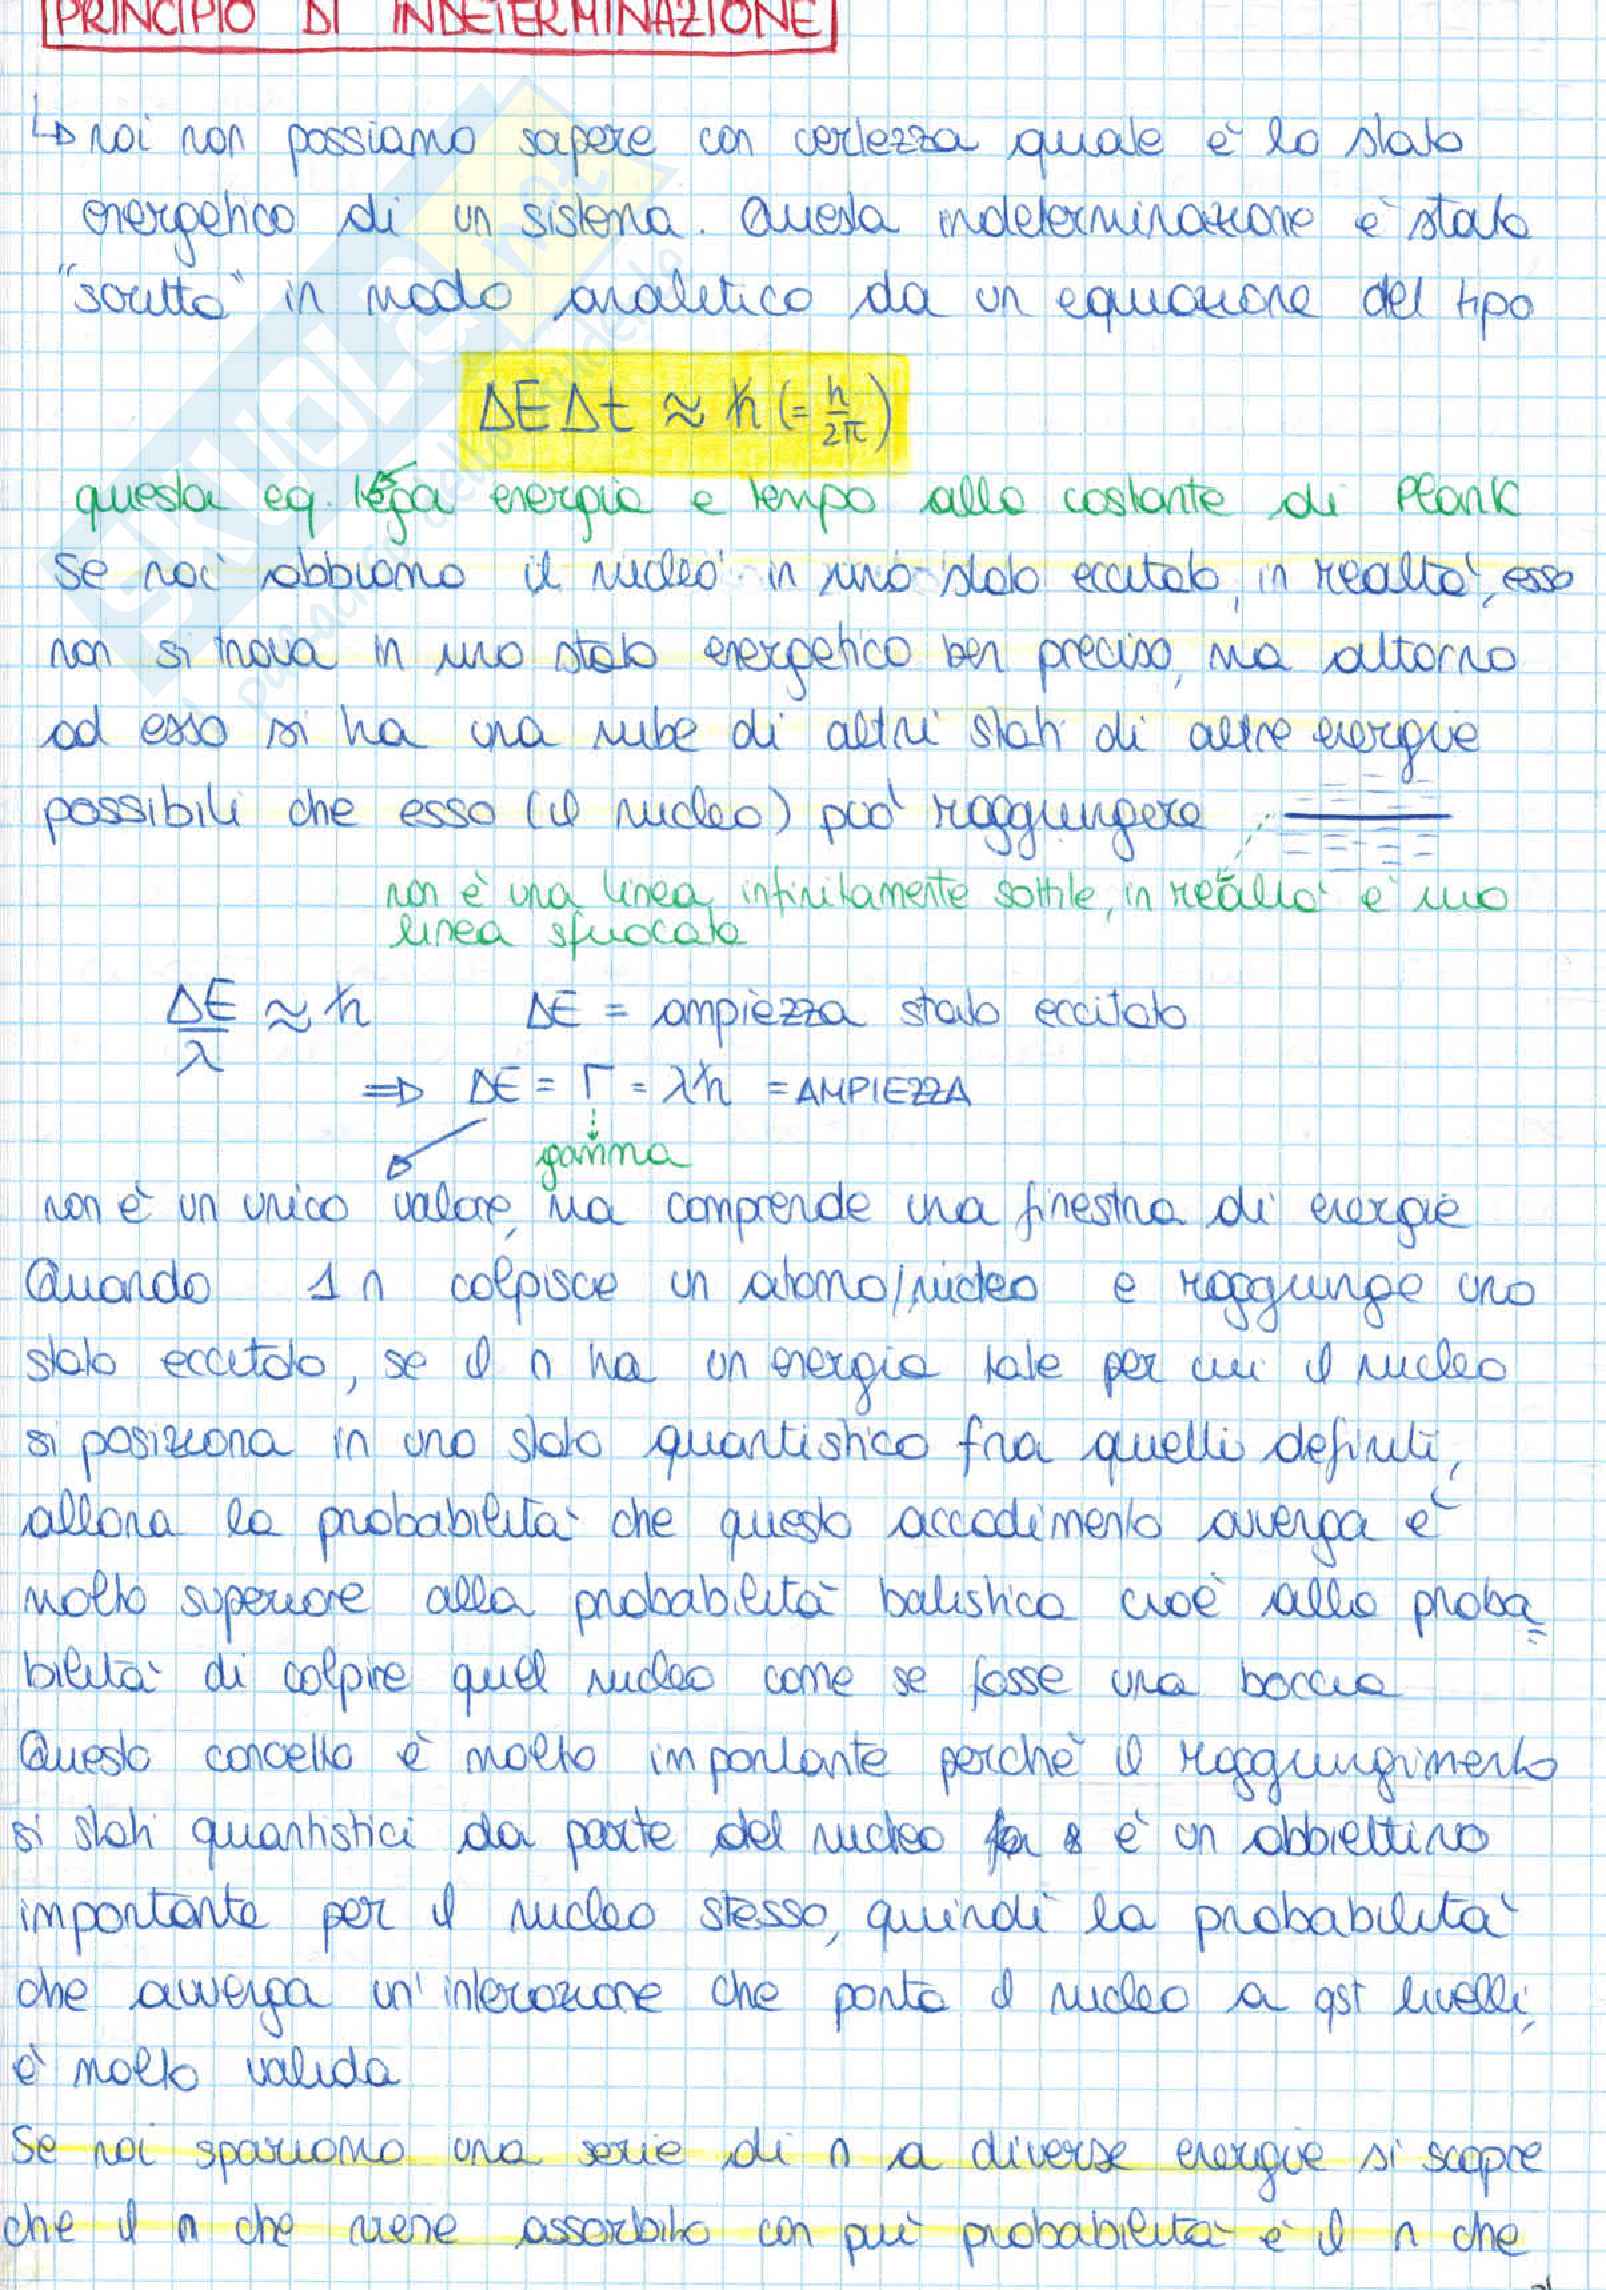 PRINCIPIO DI INDETERMINAZIONE
↳ noi non possiamo sapere con certezza quale è lo stato
energetico di un sistema. Questa indeterminazione è stata
"scritta" in modo analitico da un equazione del tipo
ΔE Δt ≈ ħ (= h/2π)
questa eq. lega energia e tempo alla costante di Plank
Se noi abbiamo il nucleo in uno stato eccitato, in realtà, esso
non si trova in uno stato energetico ben preciso, ma attorno
ad esso si ha una nube di altri stati di altre energie
possibili che esso (il nucleo) può raggiungere
non è una linea infinitamente sottile, in realtà è una
linea sfuocata
ΔE/λ ≈ ħ ΔE = ampiezza stato eccitato
⇒ ΔE = Γ = λħ = AMPIEZZA
gamma
non è un unico valore, ma comprende una finestra di energie
Quando 1 n colpisce un atomo/nucleo e raggiunge uno
stato eccitato, se il n ha un energia tale per cui il nucleo
si posiziona in uno stato quantistico fra quelli definiti,
allora la probabilità che questo accadimento avvenga è
molto superiore alla probabilità balistica cioè alla proba=
bilità di colpire quel nucleo come se fosse una boccia
Questo concetto è molto importante perchè il raggiungimento
si stati quantistici da parte del nucleo è un obbiettivo
importante per il nucleo stesso, quindi la probabilità
che avvenga un'interazione che porta il nucleo a qst livelli,
è molto valida
Se noi spariamo una serie di n a diverse energie si scopre
che il n che viene assorbito con più probabilità è il n che
SKUOLA.net